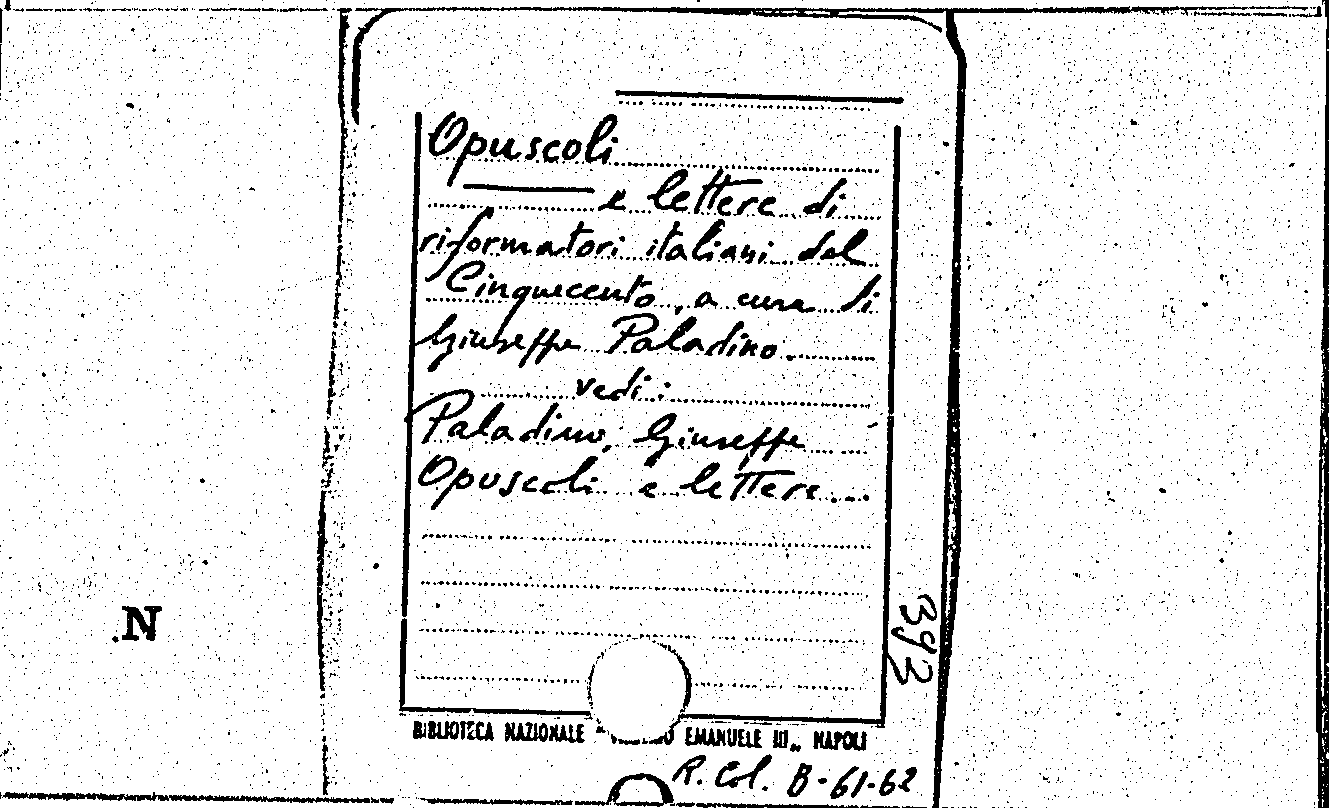 Opuscoli
e lettere di
riformatori italiani del
Cinquecento, a cura di
Giuseppe Paladino.
vedi:
Paladino, Giuseppe
Opuscoli e lettere...
392
N
BIBLIOTECA NAZIONALE " EMANUELE III„ NAPOLI
R. Col. B-61-62